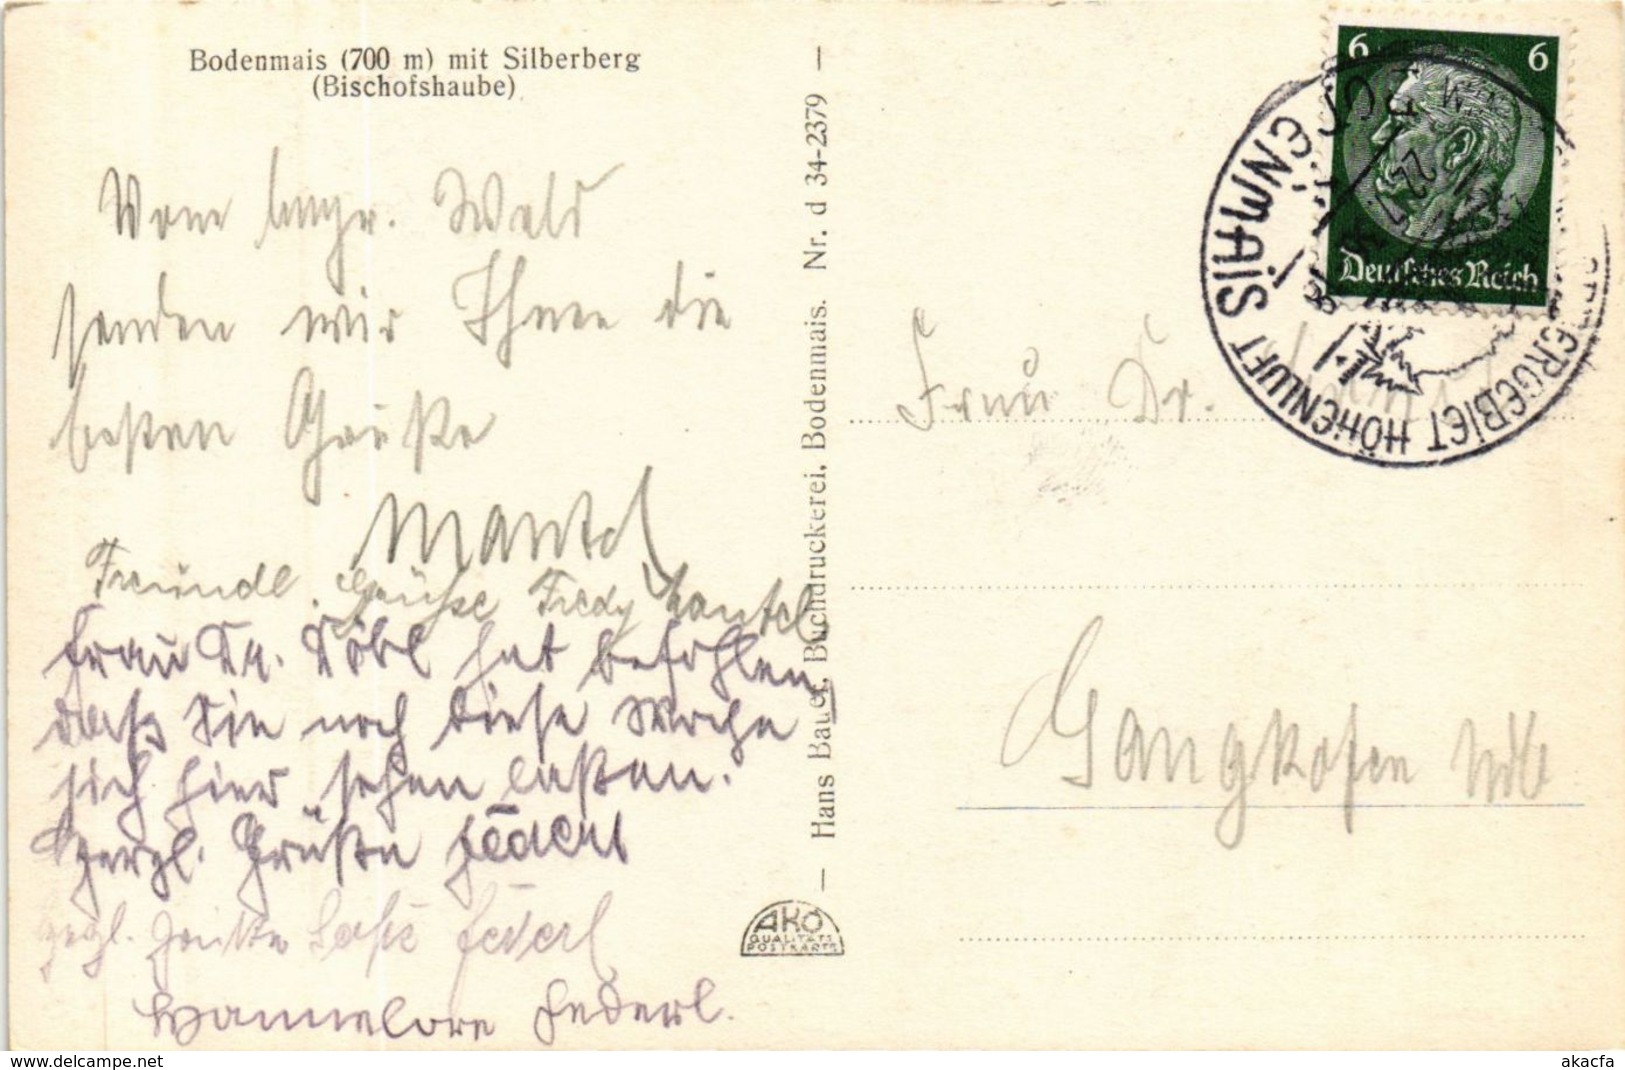 Bodenmais (700 m) mit Silberberg
(Bischofshaube)
Vom bayr. Wald
senden wir Ihnen die
besten Grüße
Mantel
Freundl. Grüsse Fredy Mantel
Frau Dr. Löbl hat befohlen,
daß Sie noch diese Woche
sich hier "sehen laßen.
Herzl. Grüße Federl
Federl
Hannelore Federl.
— Hans Bauer, Buchdruckerei, Bodenmais. Nr. d 34-2379 —
AKO
QUALITÄTS
POSTKARTE
6 6
Deutsches Reich
BODENMAIS
HÖHENLUFT
Frau Dr.
Gangkofen Ndb
akpool.co.uk
akacfa